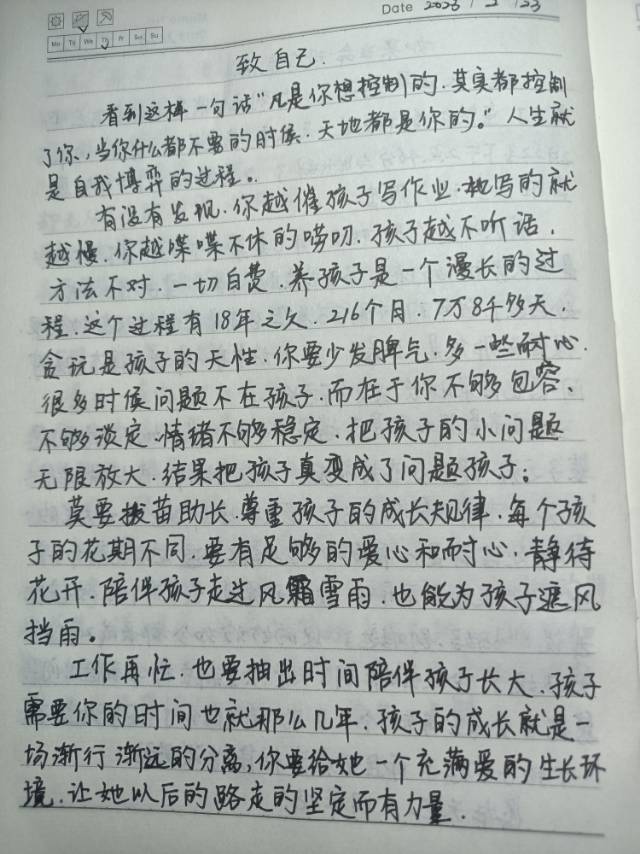 Date 2023 / 2 / 23
Mo Tu We Th Fr Sa Su
致自己.
看到这样一句话"凡是你想控制的.其实都控制
了你,当你什么都不要的时候.天地都是你的。"人生就
是自我博弈的过程。
有没有发现.你越催孩子写作业.她写的就
越慢.你越喋喋不休的唠叨.孩子越不听话,
方法不对.一切白费.养孩子是一个漫长的过
程.这个过程有18年之久.216个月.7万8千多天,
贪玩是孩子的天性.你要少发脾气.多一些耐心.
很多时候问题不在孩子.而在于你不够包容、
不够淡定.情绪不够稳定.把孩子的小问题
无限放大.结果把孩子真变成了问题孩子。
莫要拔苗助长.尊重孩子的成长规律.每个孩
子的花期不同.要有足够的爱心和耐心.静待
花开.陪伴孩子走过风霜雪雨.也能为孩子遮风
挡雨。
工作再忙.也要抽出时间陪伴孩子长大.孩子
需要你的时间也就那么几年.孩子的成长就是一
场渐行渐远的分离,你要给她一个充满爱的生长环
境.让她以后的路走的坚定而有力量.